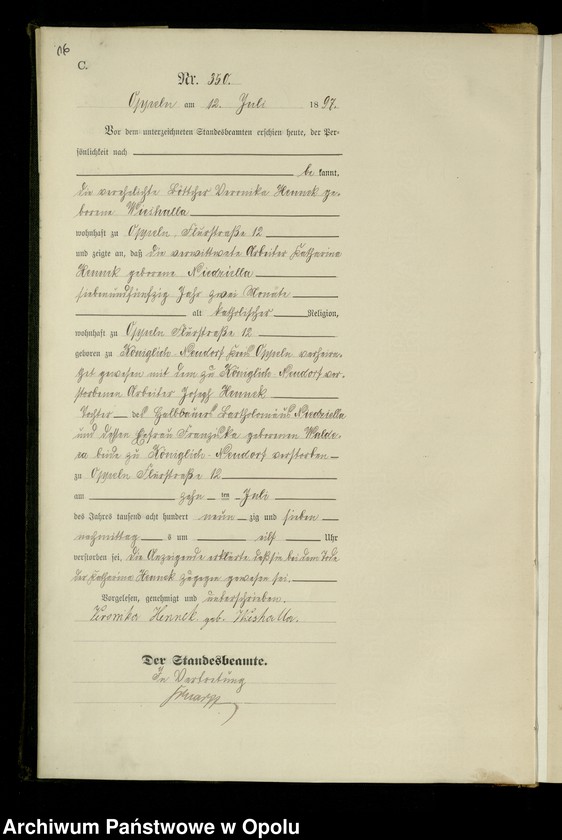 C.
Nr. 350.
Oppeln am 12. Juli 1897.
Vor dem unterzeichneten Standesbeamten erschien heute, der Per-
sönlichkeit nach
be kannt,
die verehelichte Böttcher Veronika Hennek ge-
borene Wieshalla
wohnhaft zu Oppeln Flurstraße 12
und zeigte an, daß die verwittwete Arbeiter Katharina
Hennek geborene Niedziella
siebenundfünfzig Jahr zwei Monate
alt katholischer Religion,
wohnhaft zu Oppeln Flurstraße 12
geboren zu Königlich-Neudorf Kreis Oppeln verheira-
thet gewesen mit dem zu Königlich Neudorf ver-
storbenen Arbeiter Joseph Hennek
Tochter des Halbbauers Bartholomäus Niedziella
und dessen Ehefrau Franziska geborenen
beide zu Königlich-Neudorf verstorben
zu Oppeln Flurstraße 12
am zehn ten Juli
des Jahres tausend acht hundert neun zig und sieben
nachmittag s um elf Uhr
verstorben sei, die Anzeigende erklärte daß sie bei dem Tode
der Katharina Hennek zugegen gewesen sei.
Vorgelesen, genehmigt und unterschrieben.
Hennek geb.
Der Standesbeamte.
In Vertretung
Archiwum Państwowe w Opolu